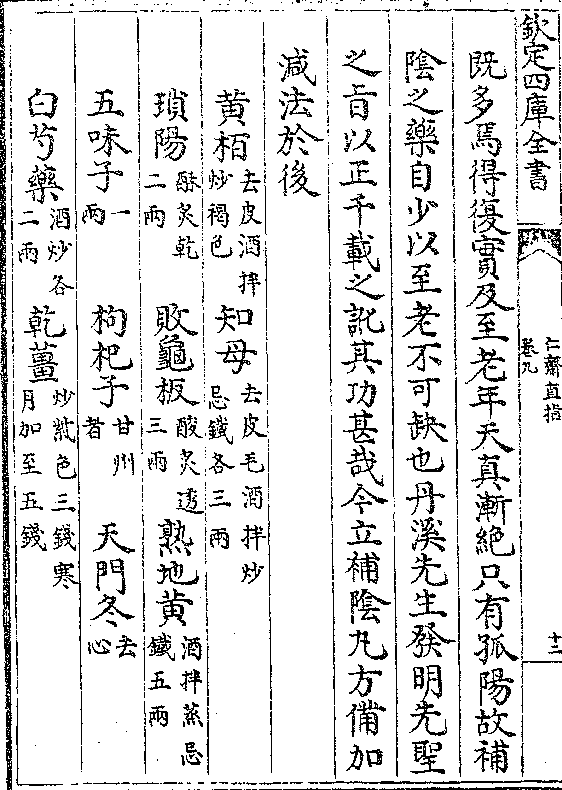 欽定四庫全書
仁齋直指
卷九
十二
既多焉得復實及至老年天真漸絕只有孤陽故補
陰之藥自少以至老不可缺也丹溪先生發明先聖
之旨以正千載之訛其功甚哉今立補陰丸方備加
減法於後
黃栢去皮酒拌炒褐色 知母去皮毛酒拌炒忌鐵各三兩
瑣陽酥炙乾二兩 敗龜板酸炙透三兩 熟地黄酒拌蒸忌鐵五兩
五味子一兩 枸杞子甘州者 天門冬去心
白芍藥酒炒各二兩 乾薑炒紫色三錢寒月加至五錢